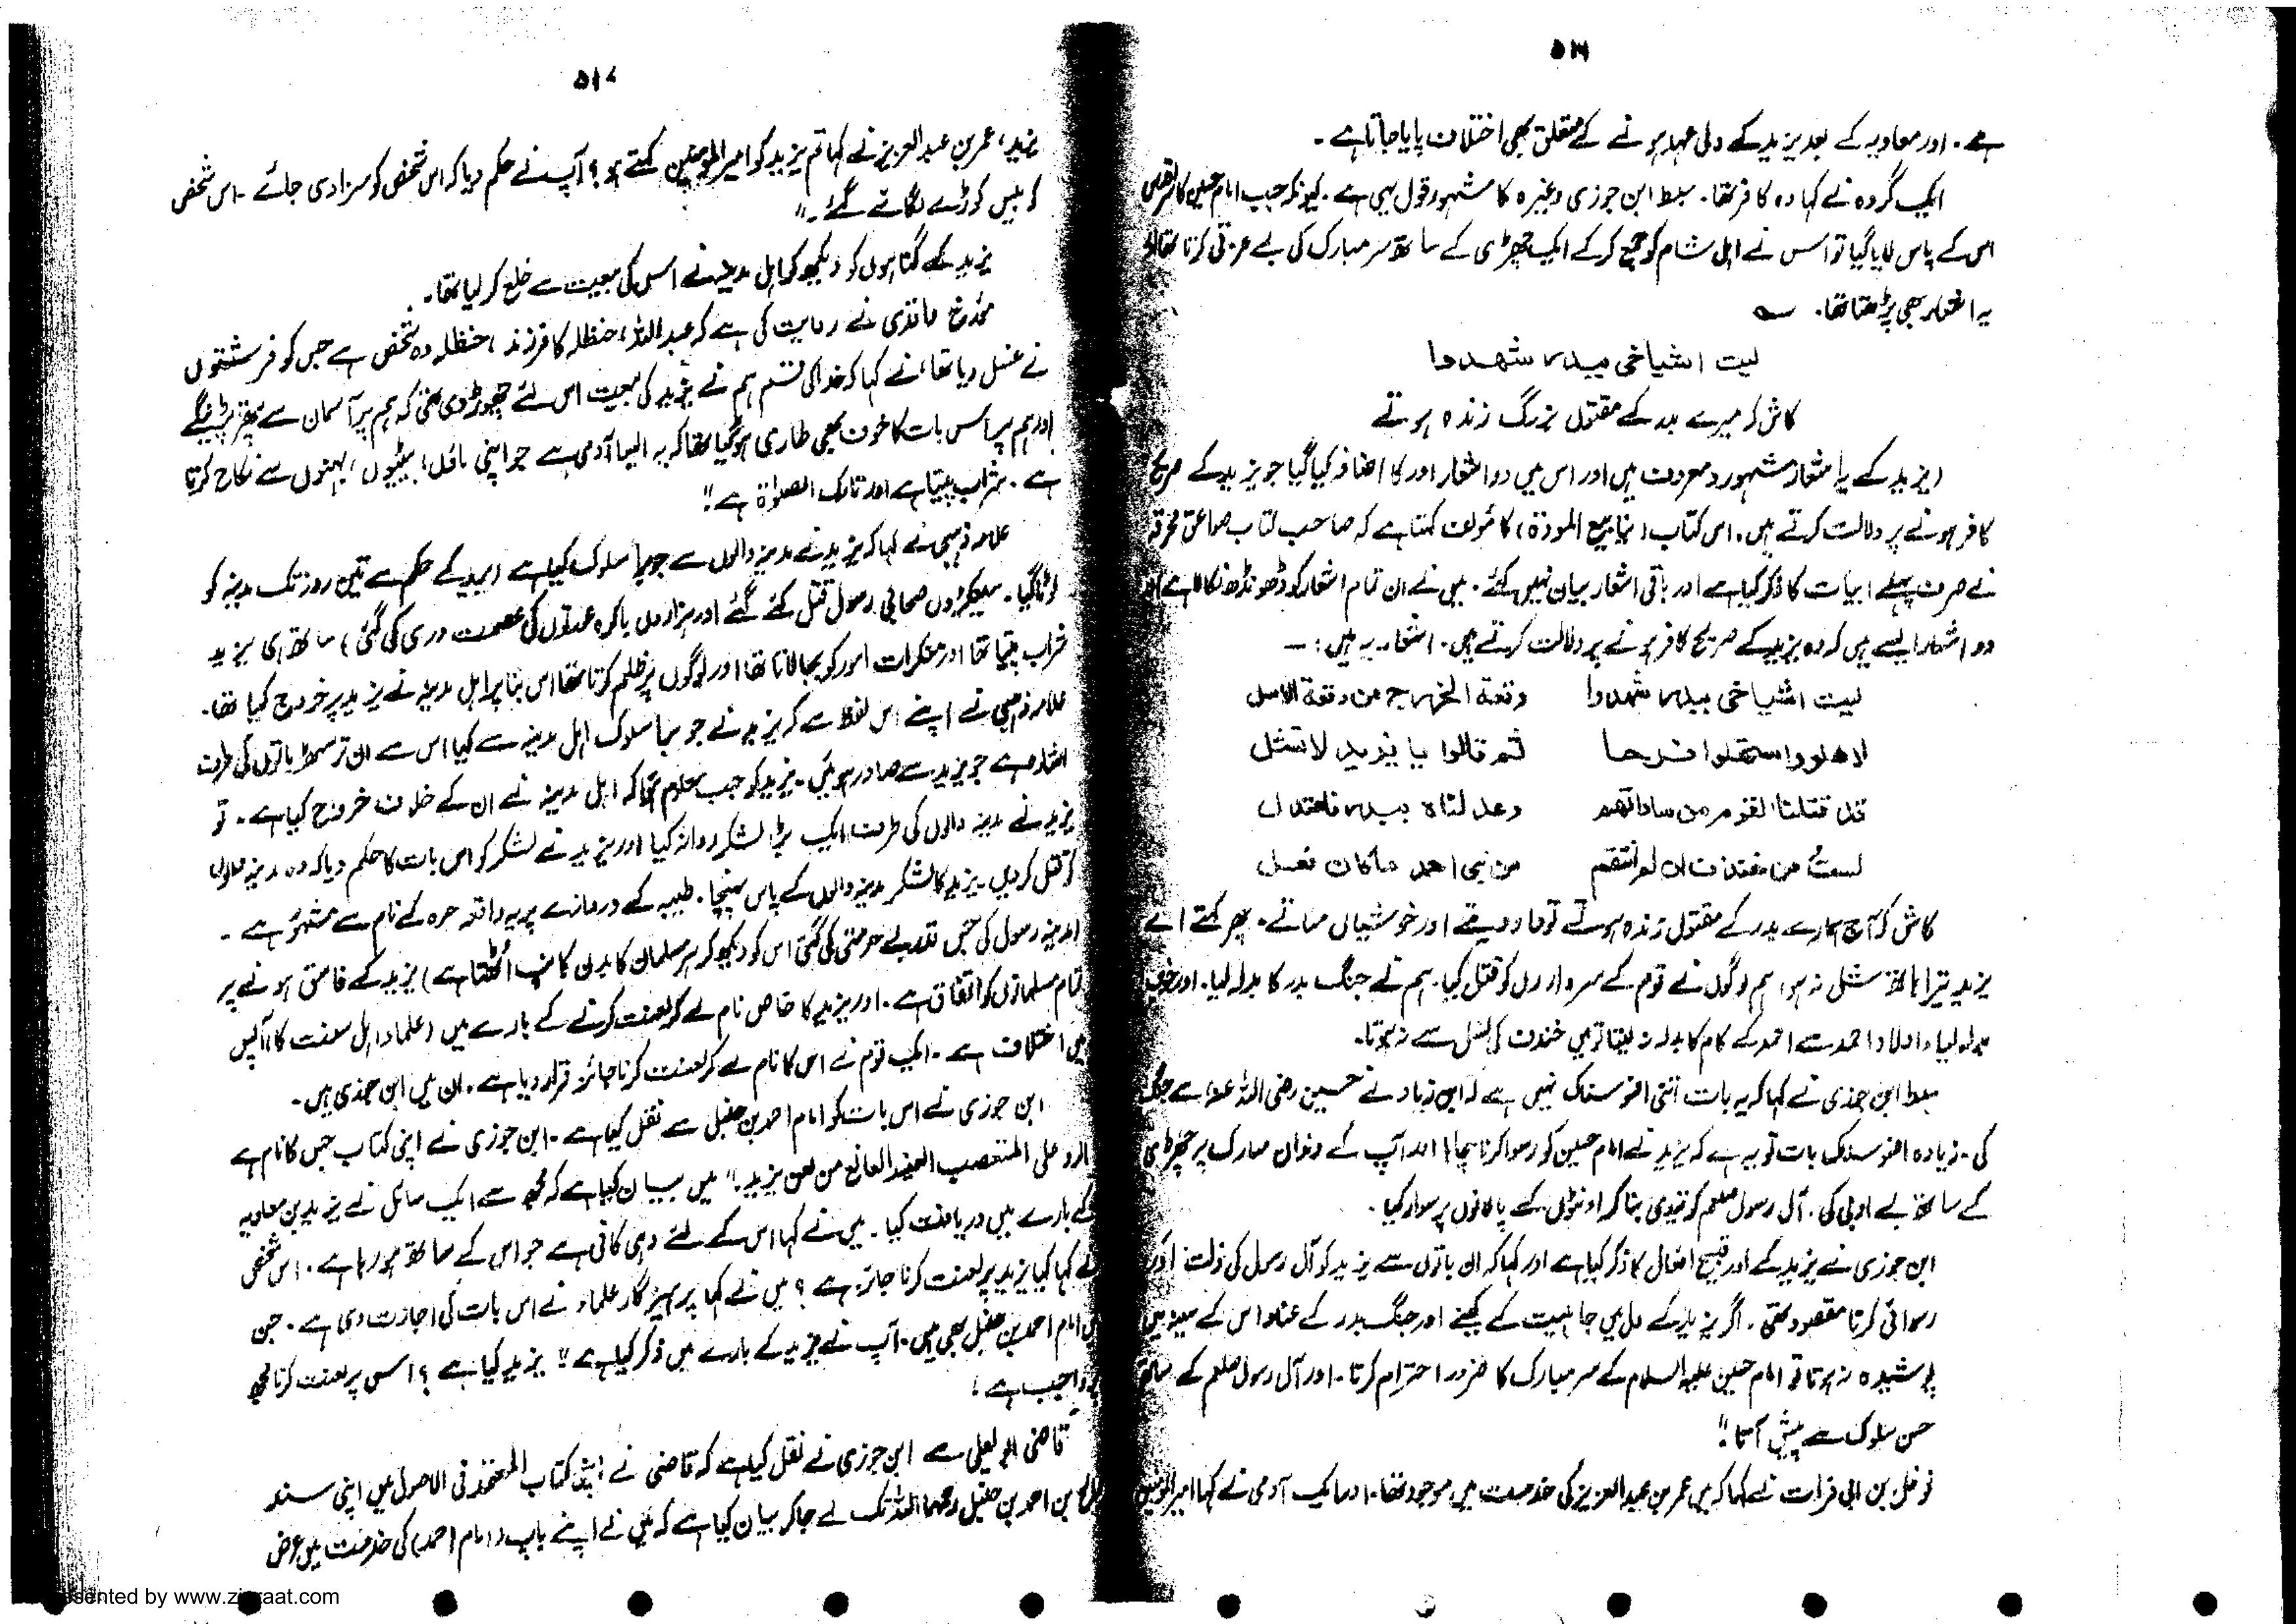 ۵۱۶
ہے۔ اور معاویہ کے بعد یزید کے ولی عہد ہونے کے متعلق بھی اختلاف پایا جاتا ہے۔
ایک گروہ نے کہا وہ کافر تھا۔ سبط ابن جوزی وغیرہ کا مشہور قول یہی ہے۔ کیونکہ جب امام حسین کا سر اقدس
اس کے پاس لایا گیا تو اس نے اہل شام کو جمع کر کے ایک چھڑی کے ساتھ سر مبارک کی بے عزتی کرتا تھا اور
یہ اشعار بھی پڑھتا تھا۔
لیت اشیاخی ببدر شهدوا
کاش کہ میرے بدر کے مقتول بزرگ زندہ ہوتے
(یزید کے یہ اشعار مشہور و معروف ہیں اور اس میں دو اشعار اور کا اضافہ کیا گیا جو یزید کے صریح
کافر ہونے پر دلالت کرتے ہیں۔ اس کتاب (ینابیع المودۃ) کا مؤلف کہتا ہے کہ صاحب کتاب صواعق محرقہ
نے صرف پہلے ابیات کا ذکر کیا ہے اور باقی اشعار بیان نہیں کئے۔ میں نے ان تمام اشعار کو ڈھونڈھ نکالا ہے اور
دو اشعار ایسے ہیں کہ وہ یزید کے صریح کافر ہونے پر دلالت کرتے ہیں۔ اشعار یہ ہیں:۔
لیت اشیاخی ببدر شهدوا وقعة الخزرج من وقعة الاسل
لاهلوا واستهلوا فرحا ثم قالوا یا یزید لا تشل
قد قتلنا القوم من ساداتهم وعدلناه ببدر فاعتدل
لست من خندف ان لم انتقم من بنی احمد ماکان فعل
کاش کہ آج ہمارے بدر کے مقتول زندہ ہوتے تو داد دیتے اور خوشیاں مناتے۔ پھر کہتے اے
یزید تیرا ہاتھ شل نہ ہو، ہم لوگوں نے قوم کے سرداروں کو قتل کیا۔ ہم نے جنگ بدر کا بدلہ لیا۔ اور خوب
بدلہ لیا۔ اولاد احمد سے احمد کے کام کا بدلہ نہ لیتا تو میں خندف کی نسل سے نہ ہوتا۔
سبط ابن جوزی نے کہا کہ یہ بات اتنی افسوسناک نہیں ہے کہ ابن زیاد نے حسین رضی اللہ عنہ سے جنگ
کی۔ زیادہ افسوسناک بات تو یہ ہے کہ یزید نے امام حسین کو رسوا کرنا چاہا اور آپ کے دندان مبارک پر چھڑی
کے ساتھ بے ادبی کی۔ آل رسول صلعم کو قیدی بنا کر اونٹوں کے پالانوں پر سوار کیا۔
ابن جوزی نے یزید کے اور قبیح افعال کا ذکر کیا ہے اور کہا کہ ان باتوں سے یزید کو آل رسول کی ذلت اور
رسوائی کرنا مقصود تھی۔ اگر یزید کے دل میں جاہلیت کے کینے اور جنگ بدر کے عناد اس کے سینہ میں
پوشیدہ نہ ہوتا تو امام حسین علیہ السلام کے سر مبارک کا ضرور احترام کرتا۔ اور آل رسول صلعم کے ساتھ
حسن سلوک سے پیش آتا"
نوفل بن ابی فرات نے کہا کہ میں عمر بن عبدالعزیز کی خدمت میں موجود تھا۔ اور ایک آدمی نے کہا امیر المومنین
۵۱۷
یزید، عمر بن عبدالعزیز نے کہا تم یزید کو امیر المومنین کہتے ہو؟ آپ نے حکم دیا کہ اس شخص کو سزا دی جائے۔ اس شخص
کو بیس کوڑے لگائے گئے۔"
یزید کے گناہوں کو دیکھ کر اہل مدینہ نے اس کی بیعت سے خلع کر لیا تھا۔
مؤرخ واقدی نے روایت کی ہے کہ عبداللہ، حنظلہ کا فرزند، حنظلہ وہ شخص ہے جس کو فرشتوں
نے غسل دیا تھا، نے کہا کہ خدا کی قسم ہم نے یزید کی بیعت اس لئے چھوڑ دی تھی کہ ہم پر آسمان سے پتھر پڑینگے
اور ہم پر اس بات کا خوف بھی طاری ہو گیا تھا کہ یہ ایسا آدمی ہے جو اپنی ماؤں، بیٹیوں، بہنوں سے نکاح کرتا
ہے۔ شراب پیتا ہے اور تارک الصلوٰۃ ہے"
علامہ ذہبی نے کہا کہ یزید نے مدینہ والوں سے جو برا سلوک کیا ہے (یزید کے حکم سے تین روز تک مدینہ کو
لوٹا گیا۔ سیکڑوں صحابی رسول قتل کئے گئے اور ہزاروں باکرہ عورتوں کی عصمت دری کی گئی) ساتھ ہی یزید
شراب پیتا تھا اور منکرات امور کو بجا لاتا تھا اور لوگوں پر ظلم کرتا تھا اس بنا پر اہل مدینہ نے یزید پر خروج کیا تھا۔
علامہ ذہبی نے اپنے اس لفظ سے کہ یزید نے جو برا سلوک اہل مدینہ سے کیا اس سے ان باتوں کی طرف
اشارہ ہے جو یزید سے صادر ہوئیں۔ یزید کو جب معلوم ہوا کہ اہل مدینہ نے ان کے خلاف خروج کیا ہے۔ تو
یزید نے مدینہ والوں کی طرف ایک بڑا لشکر روانہ کیا اور یزید نے لشکر کو اس بات کا حکم دیا کہ وہ مدینہ والوں
کو قتل کر دیں۔ یزید کا لشکر مدینہ والوں کے پاس پہنچا۔ طیبہ کے دروازے پر یہ واقعہ حرہ کے نام سے مشہور ہے۔
(مدینہ رسول کی جس قدر بے حرمتی کی گئی اس کو دیکھ کر ہر مسلمان کا بدن کانپ اٹھتا ہے) یزید کے فاسق ہونے پر
تمام مسلمانوں کو اتفاق ہے۔ اور یزید کا خاص نام لے کر لعنت کرنے کے بارے میں (علماء اہل سنت کا) آپس
میں اختلاف ہے۔ ایک قوم نے اس کا نام لے کر لعنت کرنا جائز قرار دیا ہے۔ ان میں ابن جوزی ہیں۔
ابن جوزی نے اس بات کو امام احمد بن حنبل سے نقل کیا ہے۔ ابن جوزی نے اپنی کتاب جس کا نام ہے
الرد علی المتعصب العنید المانع من لعن یزید" میں بیان کیا ہے کہ مجھ سے ایک سائل نے یزید بن معاویہ
کے بارے میں دریافت کیا۔ میں نے کہا اس کے لئے وہی کافی ہے جو اس کے ساتھ ہو رہا ہے۔ اس شخص
نے کہا کیا یزید پر لعنت کرنا جائز ہے؟ میں نے کہا پرہیزگار علماء نے اس بات کی اجازت دی ہے۔ جن
میں امام احمد بن حنبل بھی ہیں۔ آپ نے یزید کے بارے میں ذکر کیا ہے" یزید کیا ہے؟ اس پر لعنت کرنا مجھ
پر واجب ہے؛
قاضی ابو یعلی سے ابن جوزی نے نقل کیا ہے کہ قاضی نے اپنی کتاب المعتمد فی الاصول میں اپنی سند
صالح بن احمد بن حنبل رحمہما اللہ تک لے جا کر بیان کیا ہے کہ میں نے اپنے باپ (امام احمد) کی خدمت میں عرض
presented by www.ziaraat.com